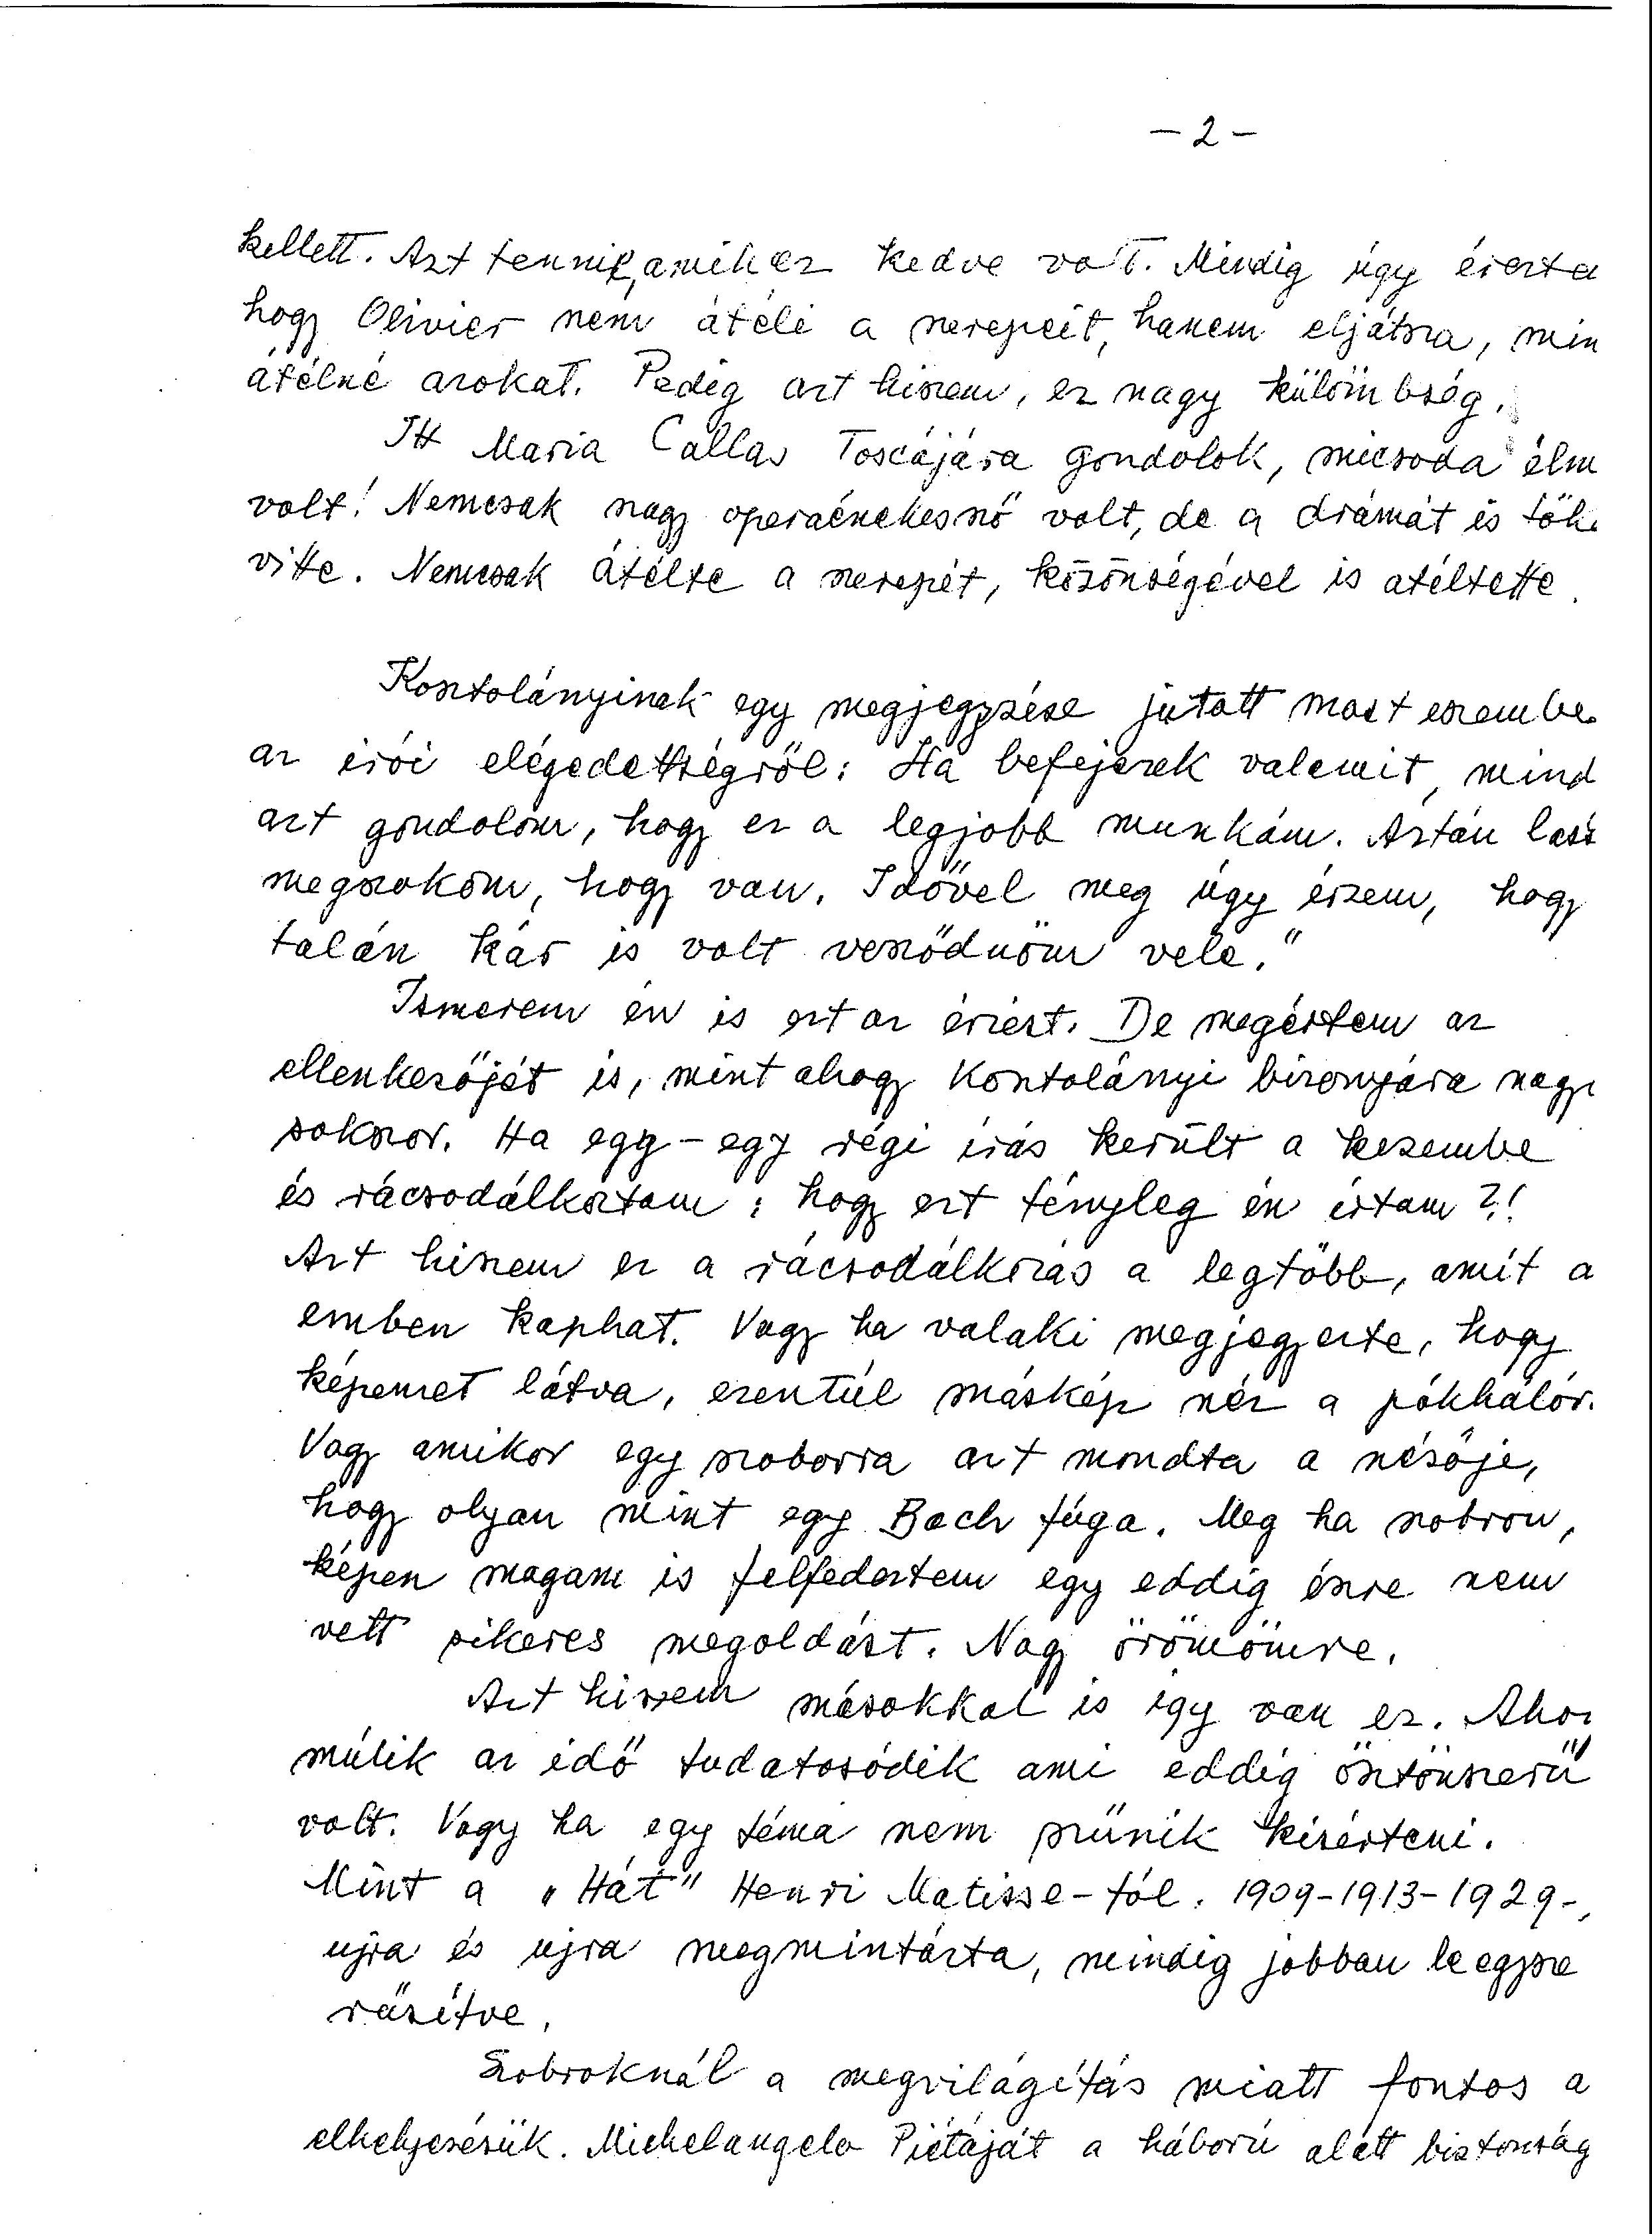 - 2 -
kellett. Azt tennie, amihez kedve volt. Mindig úgy érezte
hogy Olivier nem átéli a szerepeit, hanem eljátsza, min
átélné azokat. Pedig azt hiszem, ez nagy külömbség.
Itt Maria Callas Toscájára gondolok, micsoda élm
volt! Nemcsak nagy operaénekesnő volt, de a drámát is tök
vitte. Nemcsak átélte a szerepét, közönségével is atéltette.
Kosztolányinak egy megjegyzése jutott most eszembe
az irói elégedettségről: Ha befejezek valamit, mind
azt gondolom, hogy ez a legjobb munkám. Aztán lass
megszokom, hogy van. Idővel meg úgy érzem, hogy
talán kár is volt vesződnöm vele."
Ismerem én is ezt az érzést. De megértem az
ellenkezőjét is, mint ahogy Kosztolányi bizonyára nagy
sokszor. Ha egy-egy régi irás került a kezembe
és rácsodálkoztam: hogy ezt tényleg én irtam?!
Azt hiszem ez a rácsodálkozás a legtöbb, amit a
ember kaphat. Vagy ha valaki megjegyezte, hogy
képemet látva, ezentúl máskép néz a pókhálór.
Vagy amikor egy szoborra azt mondta a nézője,
hogy olyan mint egy Bach fúga. Meg ha szobron,
képen magam is felfedeztem egy eddig észre nem
vett sikeres megoldást. Nagy örömömre.
Azt hiszem másokkal is igy van ez. Aho
múlik az idő tudatosódik ami eddig ösztönszerű
volt. Vagy ha egy téma nem szűnik kisérteni.
Mint a „Hát" Henri Matisse-tól. 1909-1913-1929-,
ujra és ujra megmintázta, mindig jobban leegysze
rűsítve.
Szobroknál a megvilágítás miatt fontos a
elhelyezésük. Michelangelo Piétáját a háború alatt biztonság